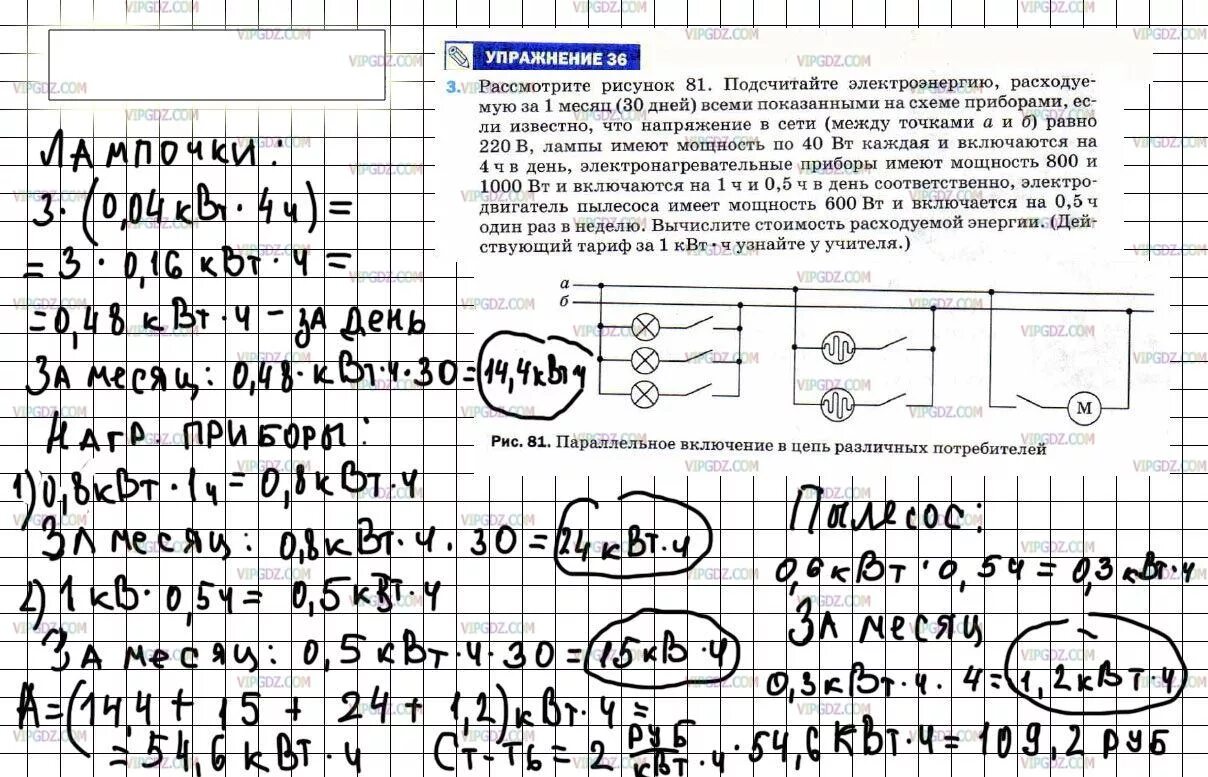 УПРАЖНЕНИЕ 36
3. Рассмотрите рисунок 81. Подсчитайте электроэнергию, расходуе-
мую за 1 месяц (30 дней) всеми показанными на схеме приборами, ес-
ли известно, что напряжение в сети (между точками а и б) равно
220 В, лампы имеют мощность по 40 Вт каждая и включаются на
4 ч в день, электронагревательные приборы имеют мощность 800 и
1000 Вт и включаются на 1 ч и 0,5 ч в день соответственно, электро-
двигатель пылесоса имеет мощность 600 Вт и включается на 0,5 ч
один раз в неделю. Вычислите стоимость расходуемой энергии. (Дей-
ствующий тариф за 1 кВт · ч узнайте у учителя.)
а
б
М
Рис. 81. Параллельное включение в цепь различных потребителей
Лампочки:
3·(0,04 кВт·4ч)=
=3·0,16 кВт·ч=
=0,48 кВт·ч – за день
За месяц: 0,48·кВт·ч·30=14,4кВтч
Нагр. приборы:
1)0,8кВт·1ч=0,8кВт·ч
За месяц: 0,8кВт·ч·30=24кВт·ч
2)1кВ·0,5ч=0,5кВт·ч
За месяц: 0,5кВт·ч·30=15кВ·ч
Пылесос:
0,6кВт·0,5ч=0,3кВт·ч
За месяц
0,3кВт·ч·4=1,2кВт·ч
А=(14,4+15+24+1,2)кВт·ч=
=54,6кВт·ч
Ст-ть=2 руб/кВт·ч·54,6кВт·ч=109,2руб
VIPGDZ.COM